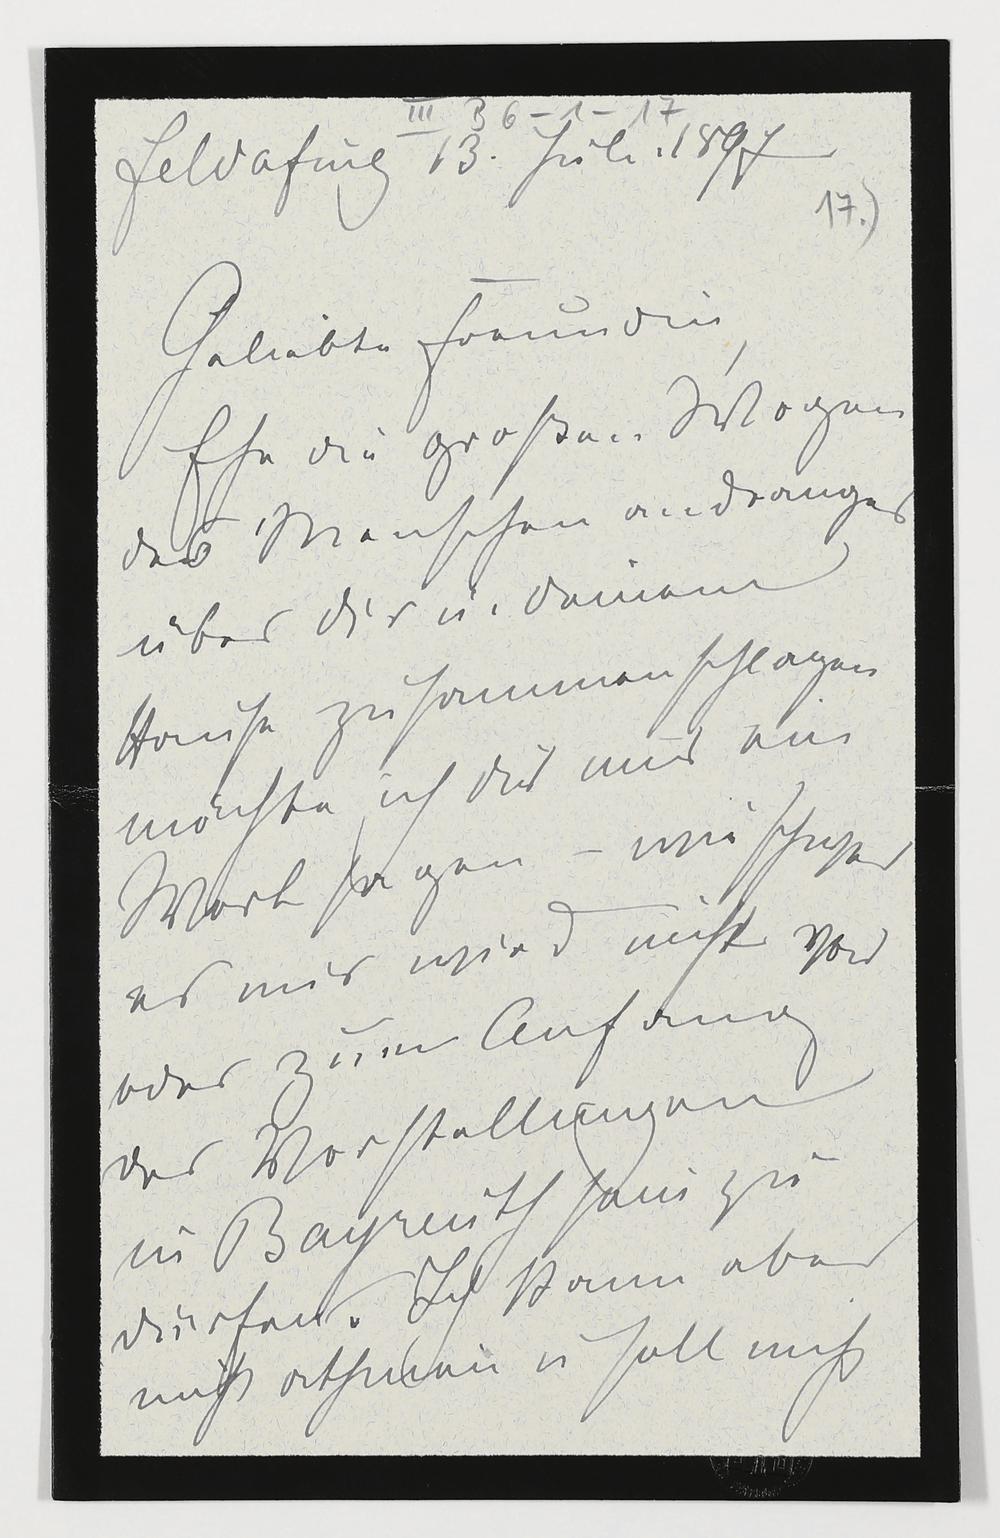 III B 6-1-17
Feldafing 13. Juli 1897
17.)
Geliebte Freundin,
Ehe die großen Wogen
des Menschenandranges
über dir u. deinem
Hause zusammenschlagen
möchte ich dir nur ein
Wort sagen – wie schwer
es mir wird nicht vor
oder zum Anfang
der Vorstellungen
in Bayreuth sein zu
dürfen. Ich kann aber
nicht athmen u soll nicht